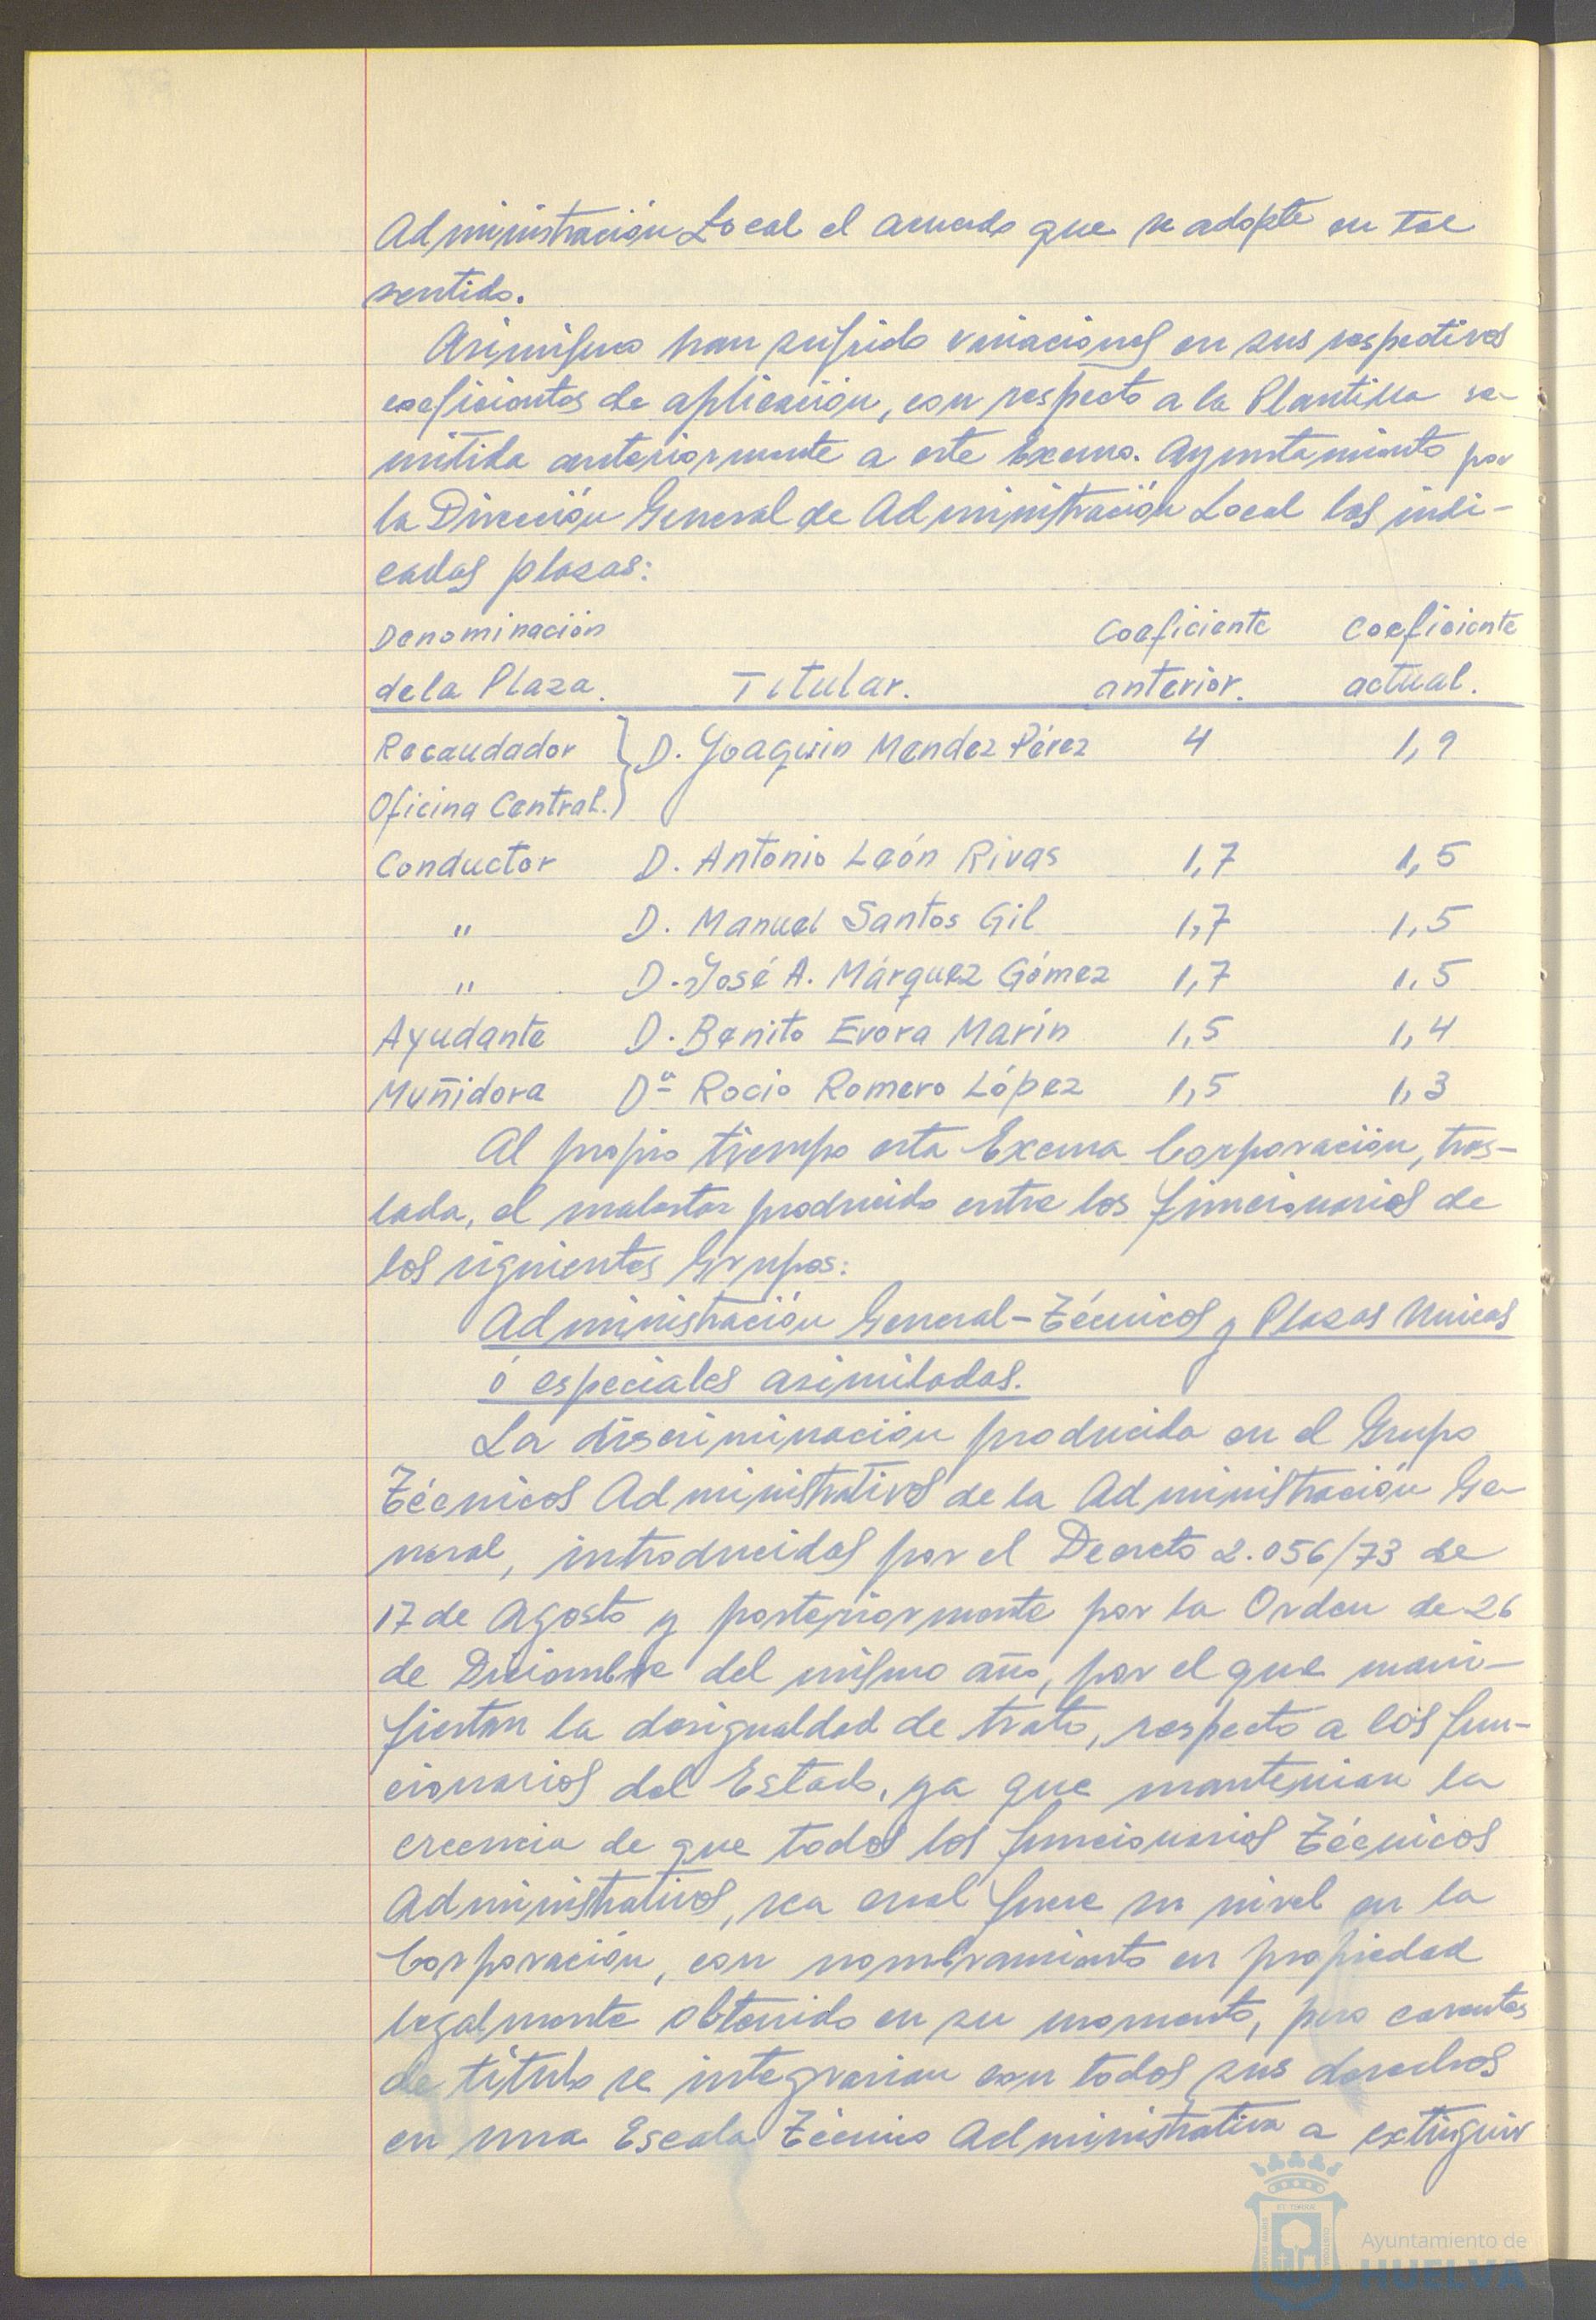 Administración Local el acuerdo que se adopte en tal
sentido.
Asimismo han sufrido variaciones en sus respectivos
coeficientes de aplicación, con respecto a la Plantilla re-
mitida anteriormente a este Excmo. Ayuntamiento por
la Dirección General de Administración Local las indi-
cadas plazas:
Denominación Coeficiente Coeficiente
de la Plaza. Titular. anterior. actual.
Recaudador D. Joaquin Mendez Pérez 4 1,9
Oficina Central.
Conductor D. Antonio León Rivas 1,7 1,5
" D. Manuel Santos Gil 1,7 1,5
" D. José A. Márquez Gómez 1,7 1,5
Ayudante D. Benito Evora Marín 1,5 1,4
Muñidora Dª Rocio Romero López 1,5 1,3
Al propio tiempo esta Excma Corporación, tras-
lada, el malestar producido entre los funcionarios de
los siguientes Grupos:
Administración General-Técnicos y Plazas Unicas
ó especiales asimiladas.
La discriminación producida en el Grupo
Técnicos Administrativos de la Administración Ge-
neral, introducidas por el Decreto 2.056/73 de
17 de Agosto y posteriormente por la Orden de 26
de Diciembre del mismo año, por el que mani-
fiestan la desigualdad de trato, respecto a los fun-
cionarios del Estado, ya que mantenian la
creencia de que todos los funcionarios Técnicos
Administrativos, sea cual fuere su nivel en la
Corporación, con nombramiento en propiedad
legalmente obtenido en su momento, pero carentes
de título se integrarian con todos sus derechos
en una Escala Técnico Administrativa a extinguir
Ayuntamiento de
HUELVA